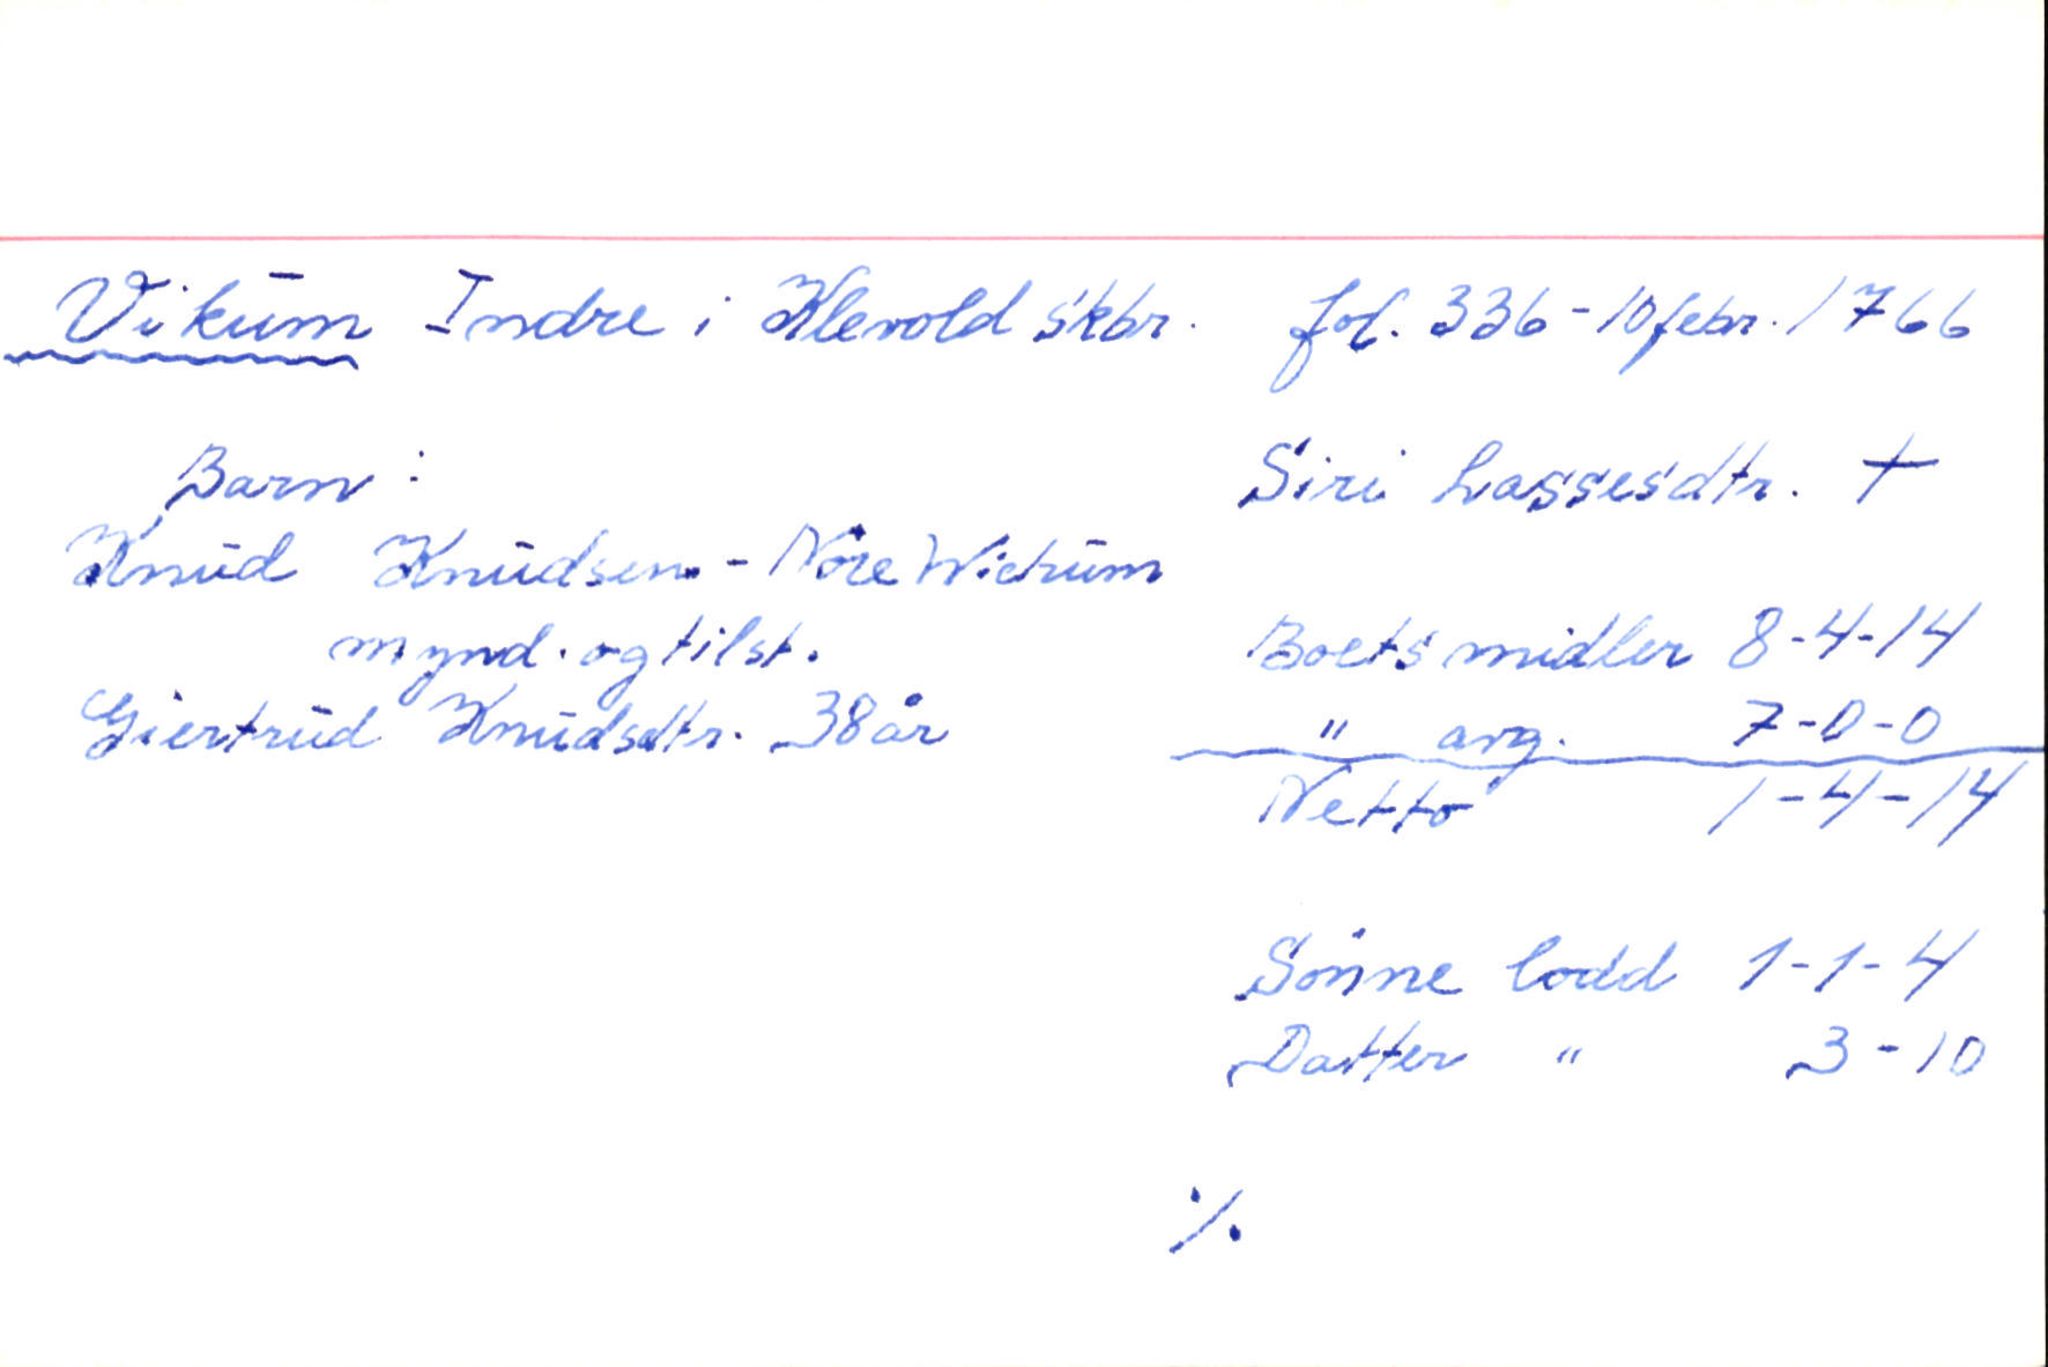 Vikum Indre i Klevold skbr. fol. 336 - 10 febr. 1766
Barn:
Knud Knudsen - Nöre Wichum
mynd. og tilst.
Giertrud Knudsdtr. 38 år
Siri Lassesdtr. +
Boets midler 8-4-14
" avg. 7-0-0
Netto 1-4-14
Sönne lodd 1-1-4
Datter " 3-10
·/.